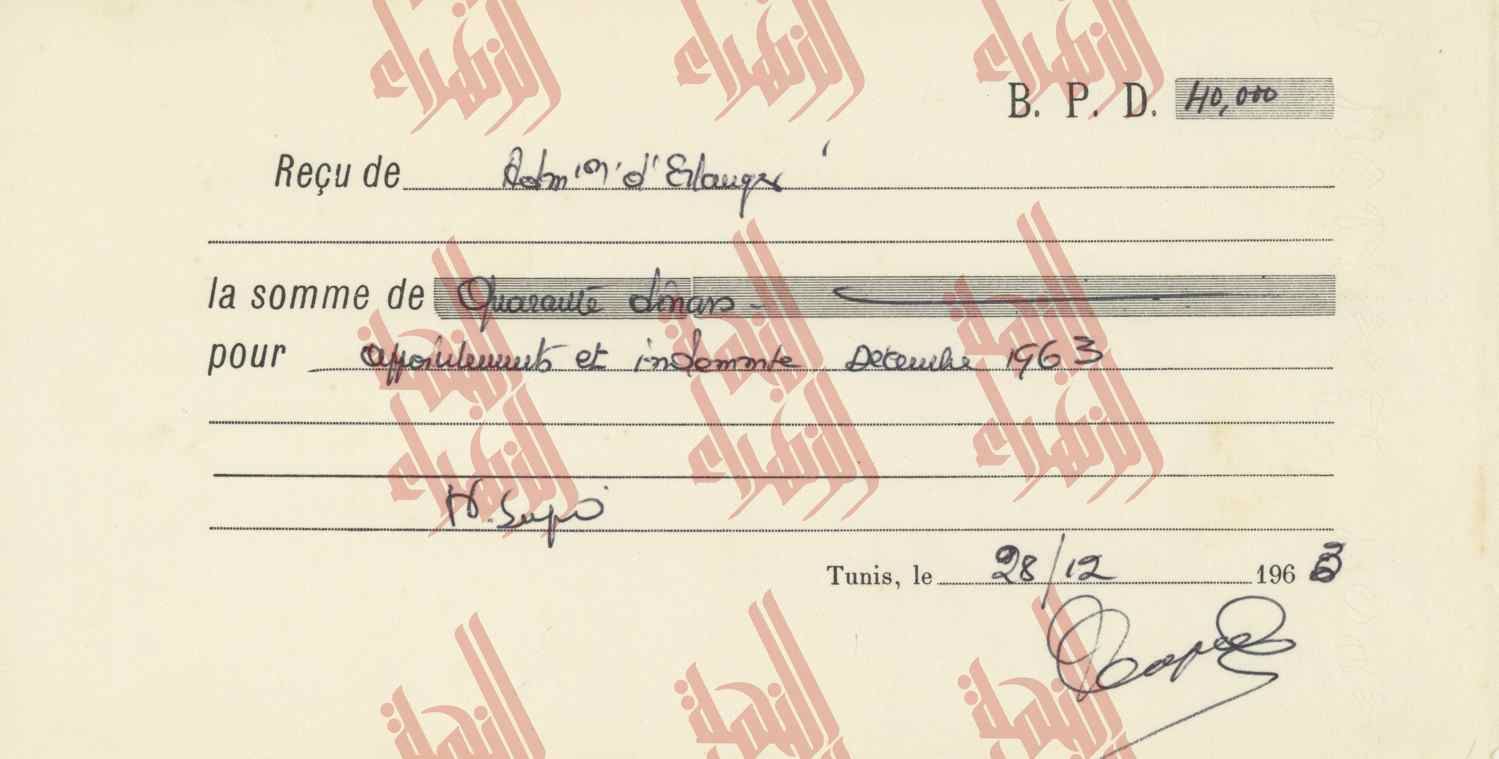 B. P. D. 40,000
Reçu de Adm'on' d'Erlanger
la somme de Quarante dinars -
pour appointements et indemnite Decembre 1963
Tunis, le 28/12 1963